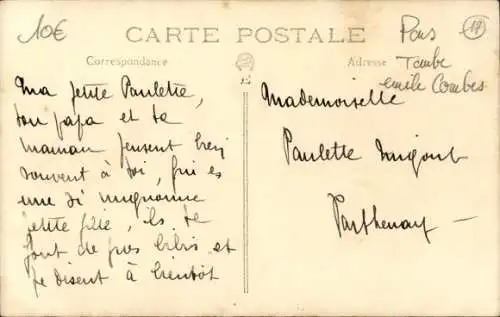 10€
CARTE POSTALE
Pons
17
Tombe
emile Combes
Correspondance
Adresse
Ma petite Paulette,
ton papa et ta
maman pensent bien
souvent à toi, qui es
une si mignonne
petite fille, ils te
font de gros bibis et
te disent à bientôt
Mademoiselle
Paulette
Parthenay —